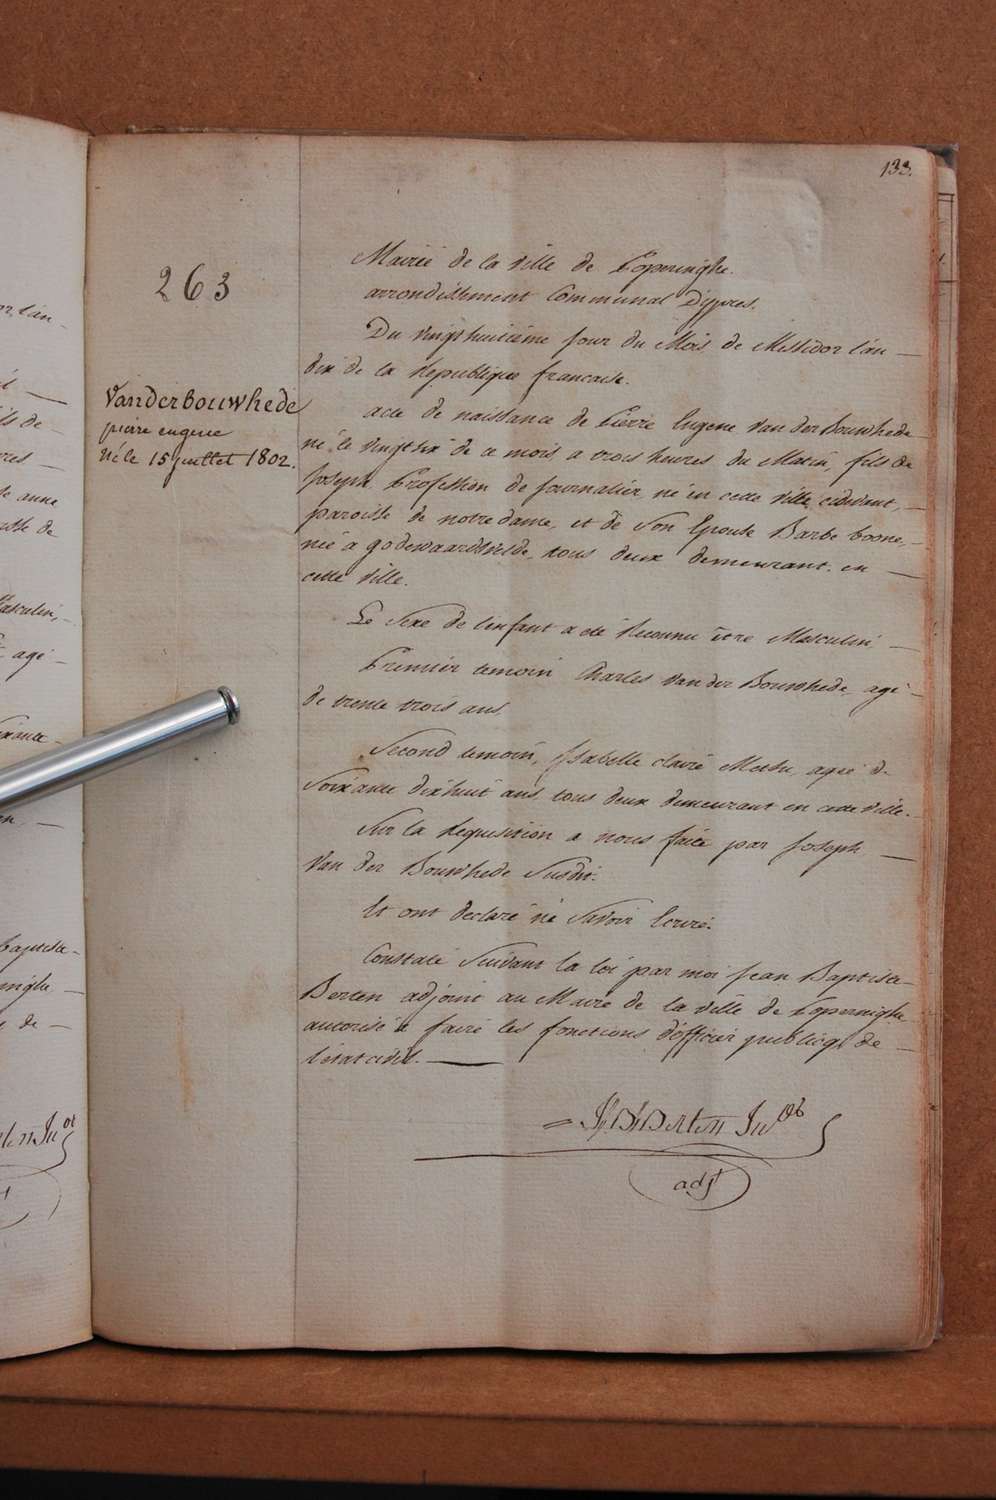 133.
263
Vanderbouwhede
pierre eugene
né le 15 juillet 1802.
Mairie de la Ville de Poperinghe.
arrondissement Communal D'ypres.
Du vingt huitieme jour du Mois de Messidor l'an —
dix de la Republique francaise.
acte de naissance de Pierre Eugene Van der Bouwhede
né le vingt six de ce mois a trois heures du Matin, fils de
Joseph Profession de journalier, né en cette ville cidevant, —
paroisse de notre dame, et de Son Epouse Barbe boone, —
née a godewaardsvelde, tous deux demeurant en —
cette ville.
Le Sexe de l'enfant a été Reconnu être Masculin —
Premier temoin Charles Van der Bouwhede agé —
de trente trois ans,
Second temoin, Isabelle claire agée de
Soixante dix huit ans tous deux demeurant en cette ville.
Sur la Requisition a nous faite par Joseph —
Van der Bouwhede Susdit.
Et ont declaré né Savoir Ecrire.
Constaté Suivant la loi par moi Jean Baptiste
Berten adjoint au Maire de la ville de Poperinghe
autorisé a faire les fonctions d'officier publicq de —
l'état civil. —
Berten
adjt